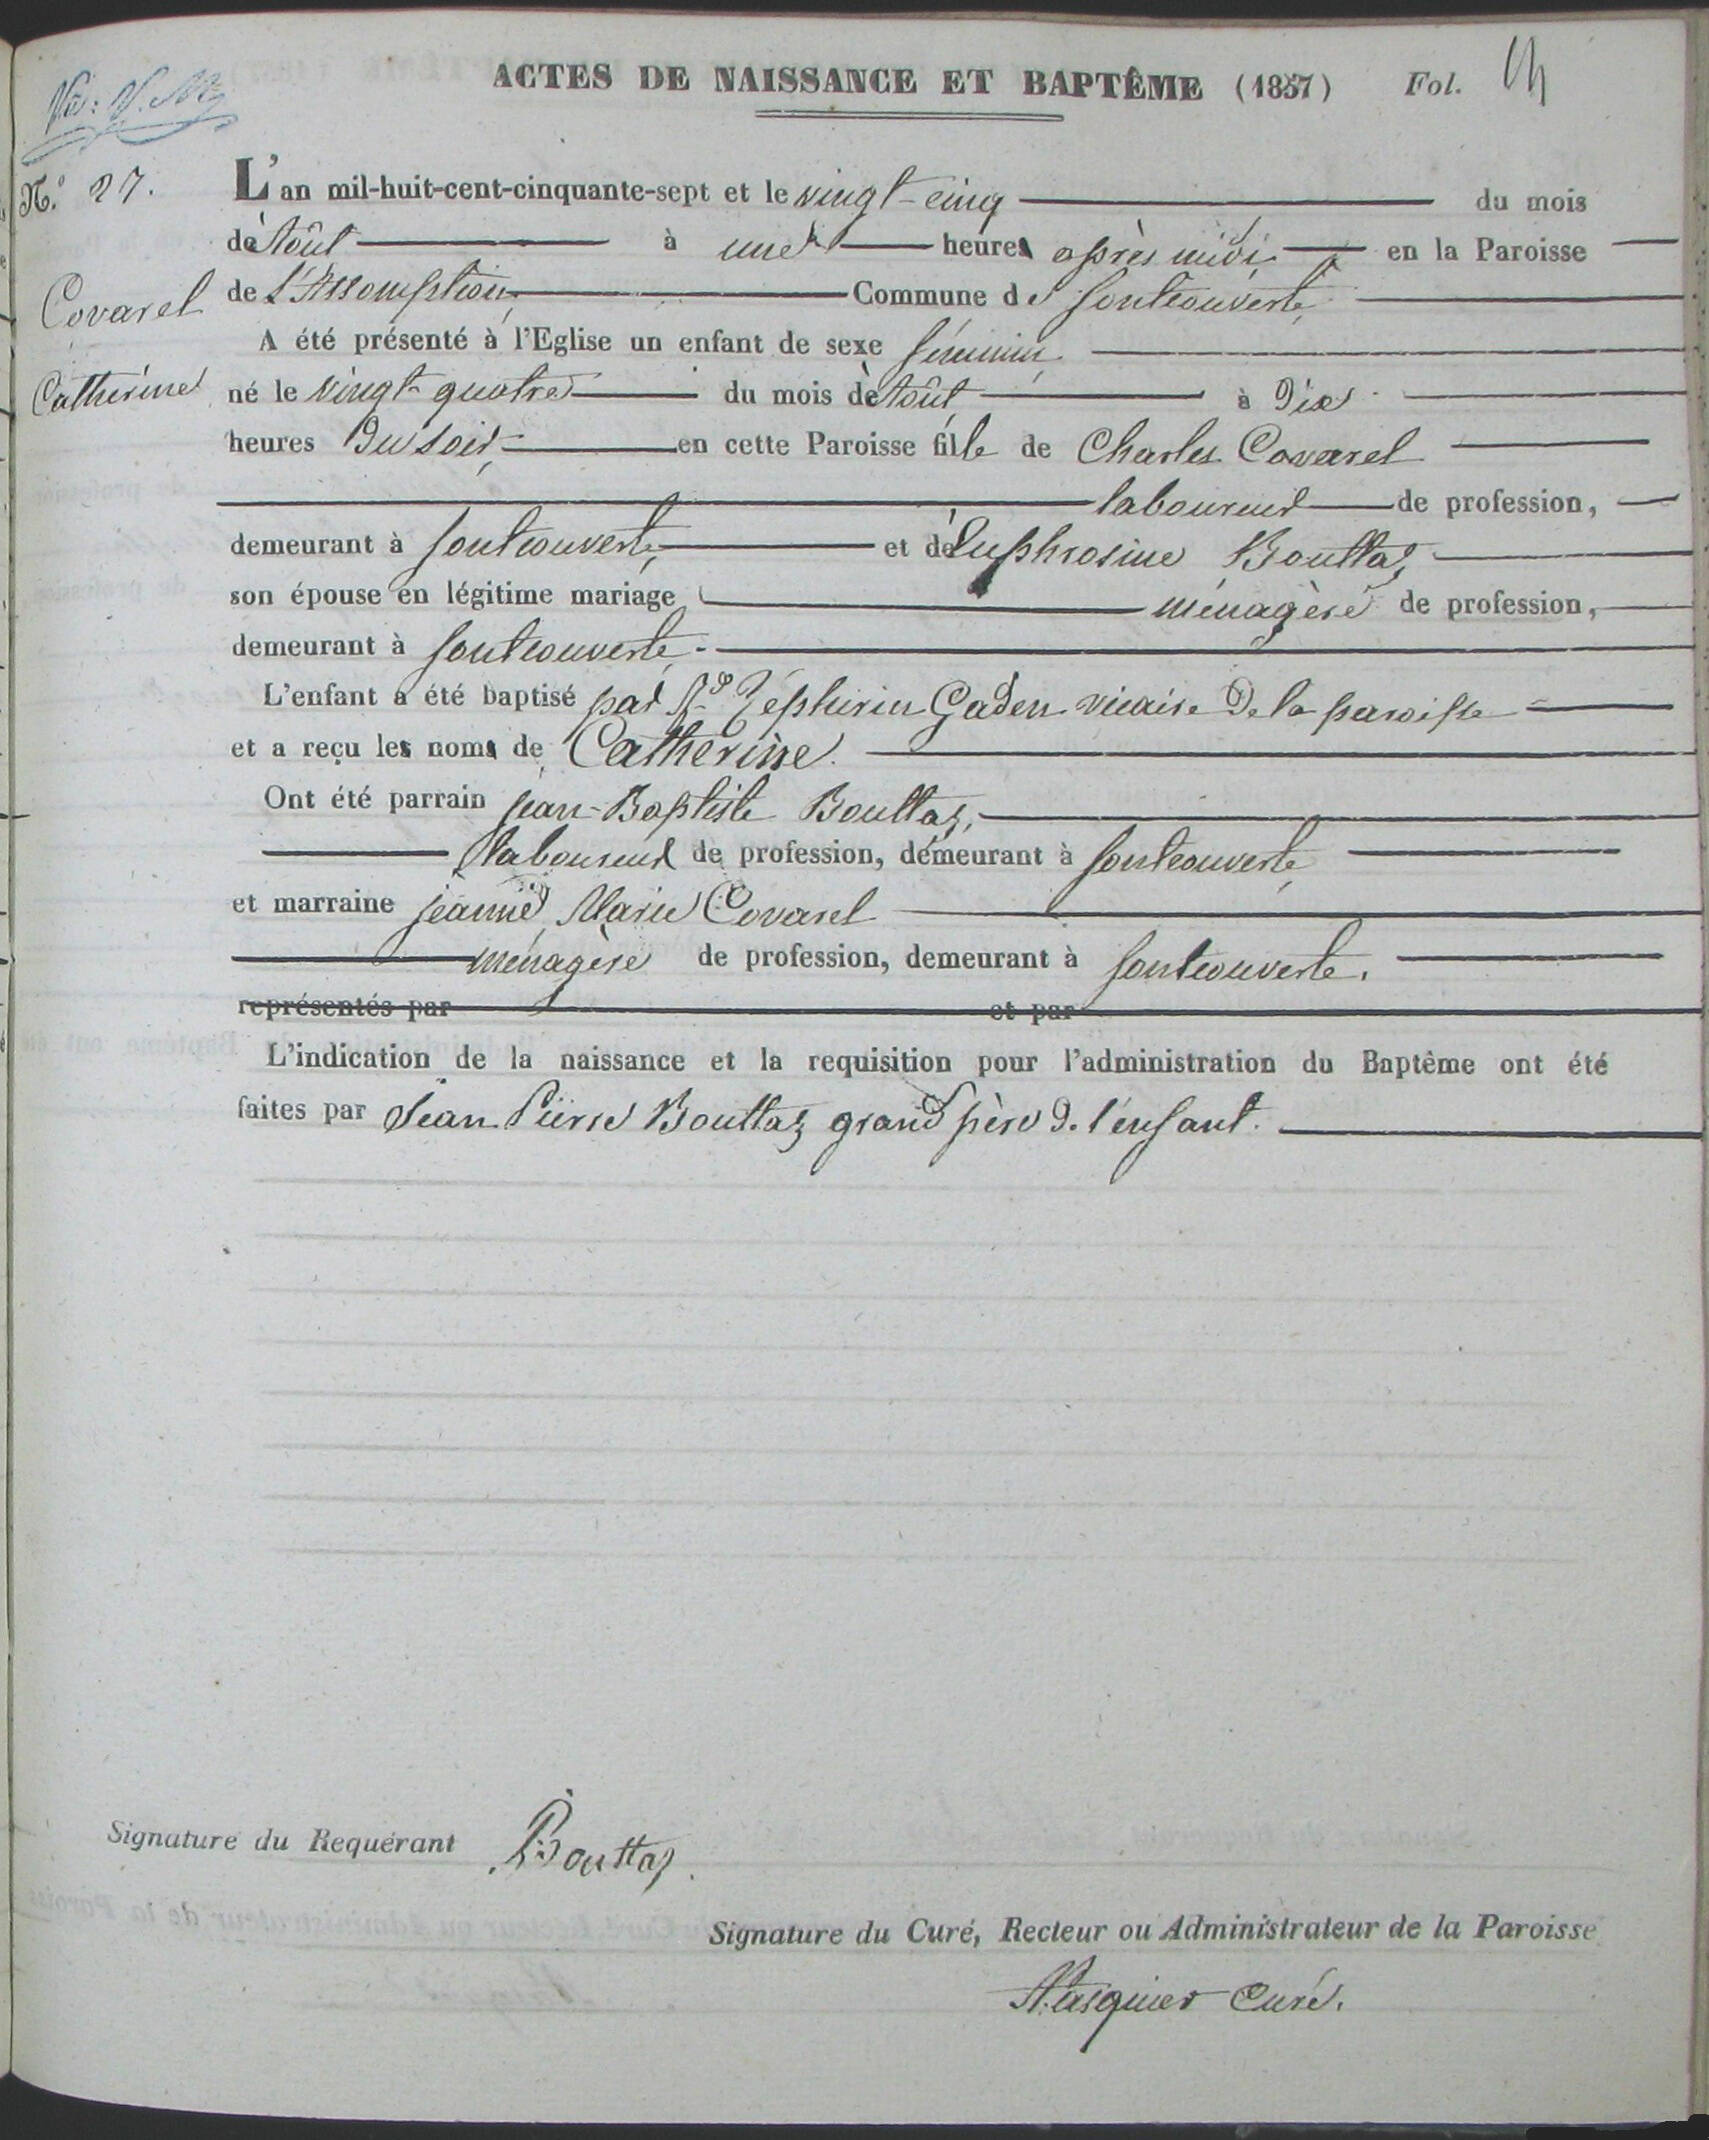 ACTES DE NAISSANCE ET BAPTÊME (1857) Fol. 14
N.° 27.
L'an mil-huit-cent-cinquante-sept et le vingt-cinq du mois
de Aôut à une heure après midi en la Paroisse
Covarel
de L'Assomption Commune de fontcouverte
A été présenté à l'Eglise un enfant de sexe féminin
Catherine
né le vingt quatre du mois de Aôut à Dix
heures Du soir en cette Paroisse fille de Charles Covarel
laboureur de profession,
demeurant à fontcouverte et de Euphrosine Bouttaz
son épouse en légitime mariage ménagère de profession,
demeurant à fontcouverte
L'enfant a été baptisé par Rd Zéphirin Gaden vicaire De la paroisse
et a reçu les noms de Catherine.
Ont été parrain jean-Baptiste Bouttaz,
laboureur de profession, demeurant à fontcouverte
et marraine jeanne Marie Covarel
ménagère de profession, demeurant à fontcouverte.
représentés par et par
L'indication de la naissance et la requisition pour l'administration du Baptême ont été
faites par Jean Pierre Bouttaz grand père De l'enfant.
Signature du Requérant Bouttaz
Signature du Curé, Recteur ou Administrateur de la Paroisse
Curé.